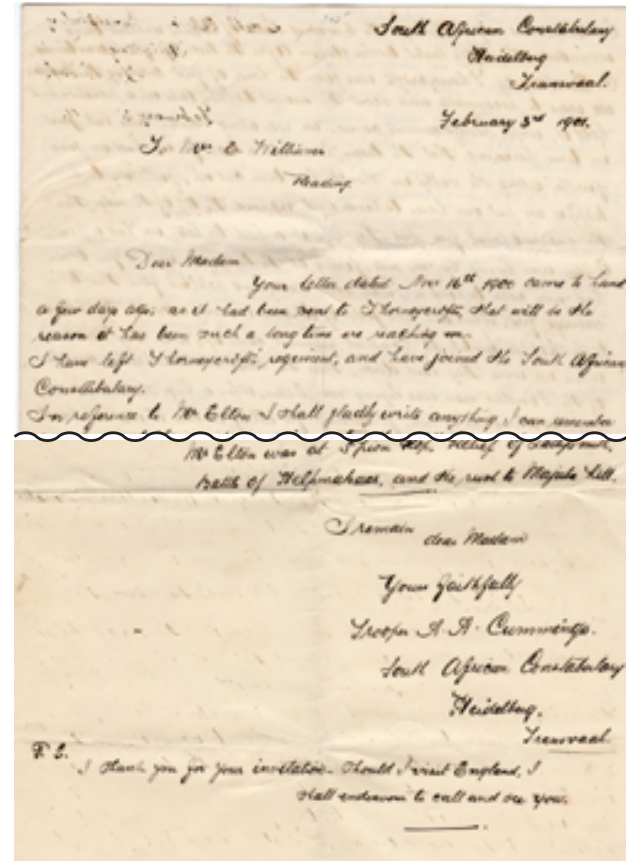 South African Constabulary
Heidelberg
Transvaal.
February 3rd 1901.
To Mrs E. Williams
Reading
Dear Madam
Your letter dated Nov 16th 1900 came to hand
a few days ago, as it had been sent to Thorneycrofts, that will be the
reason it has been such a long time in reaching me.
I have left Thorneycrofts regiment, and have joined the South African
Constabulary.
In reference to Mr Elton I shall gladly write anything I can remember
Mr Elton was at Spion Kop, relief of Ladysmith,
battle of Helpmakaar, and the rush to Majuba Hill.
I remain
dear Madam
Yours faithfully
Trooper A. A. Cummings.
South African Constabulary
Heidelberg.
Transvaal.
P.S.
I thank you for your invitation. Should I visit England, I
shall endeavour to call and see you.